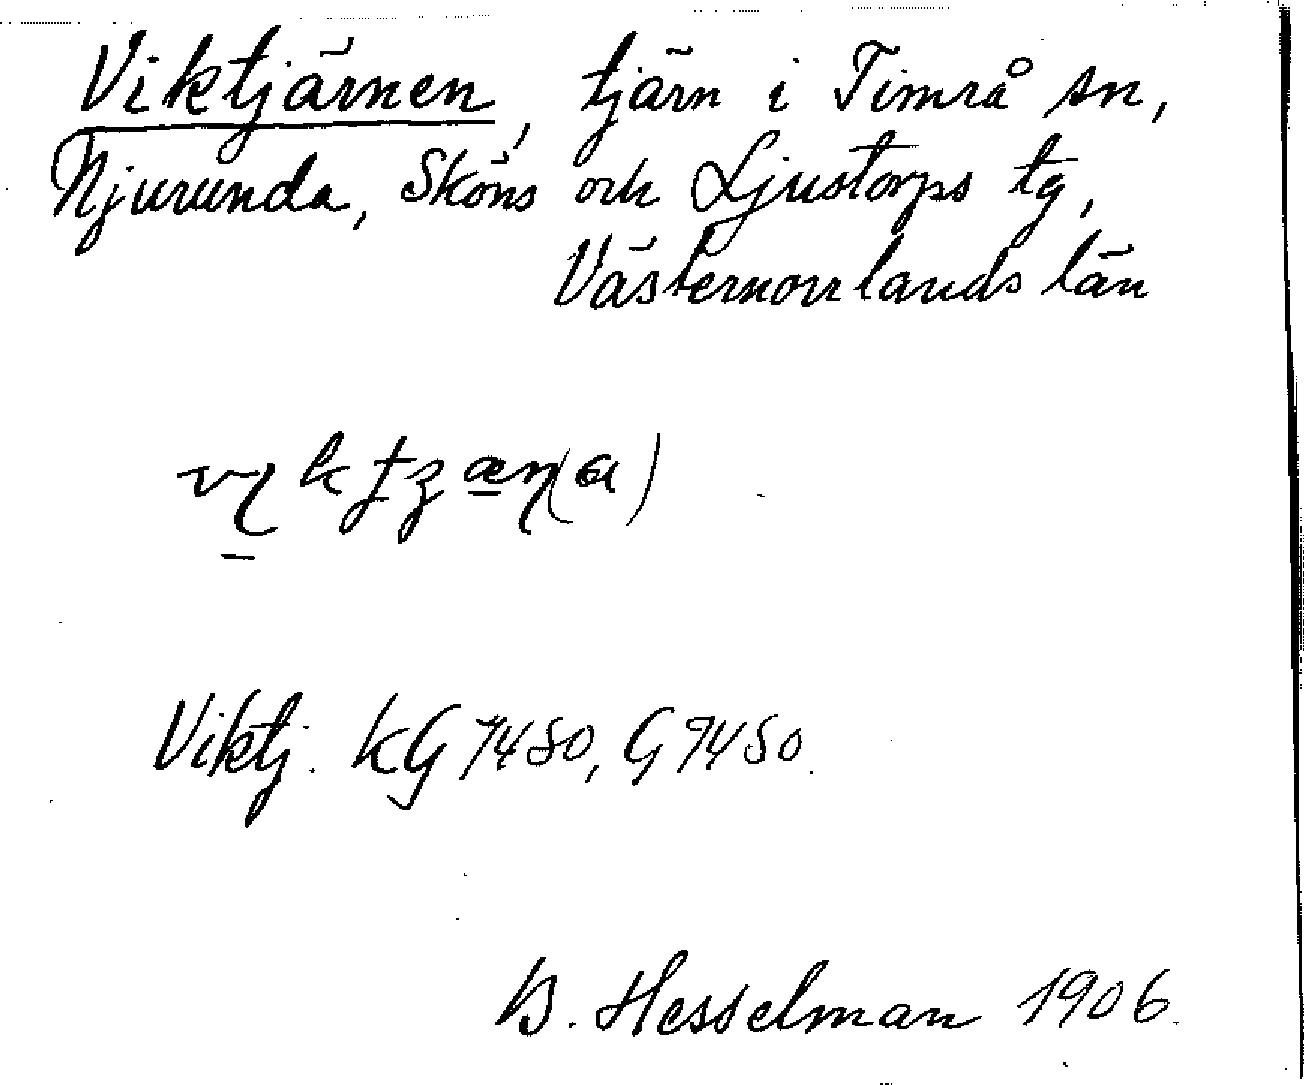 Viktjärnen, tjärn i Timrå sn,
Njurunda, Sköns och Ljustorps tg,
Västernorrlands län
Viktj. KG 7480, G 7480.
B. Hesselman 1906.